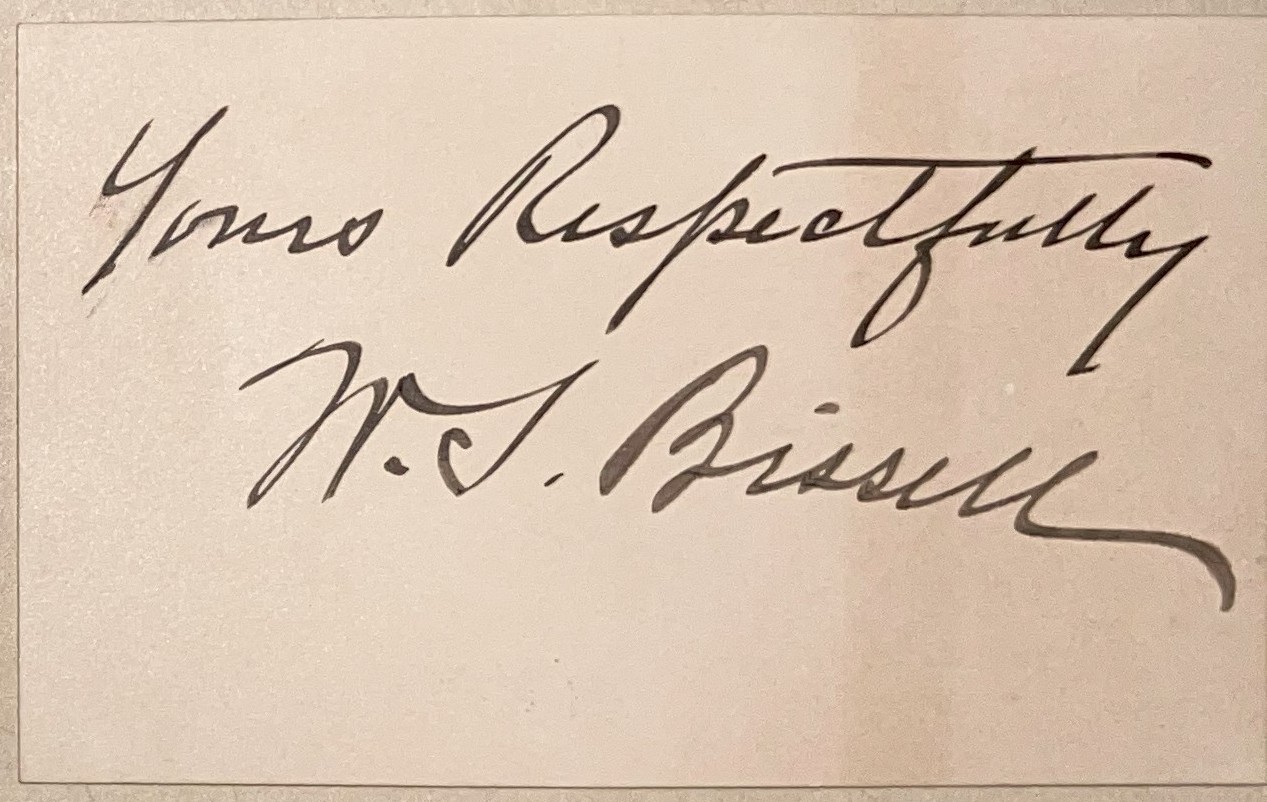 Yours Respectfully
W. S. Bissell